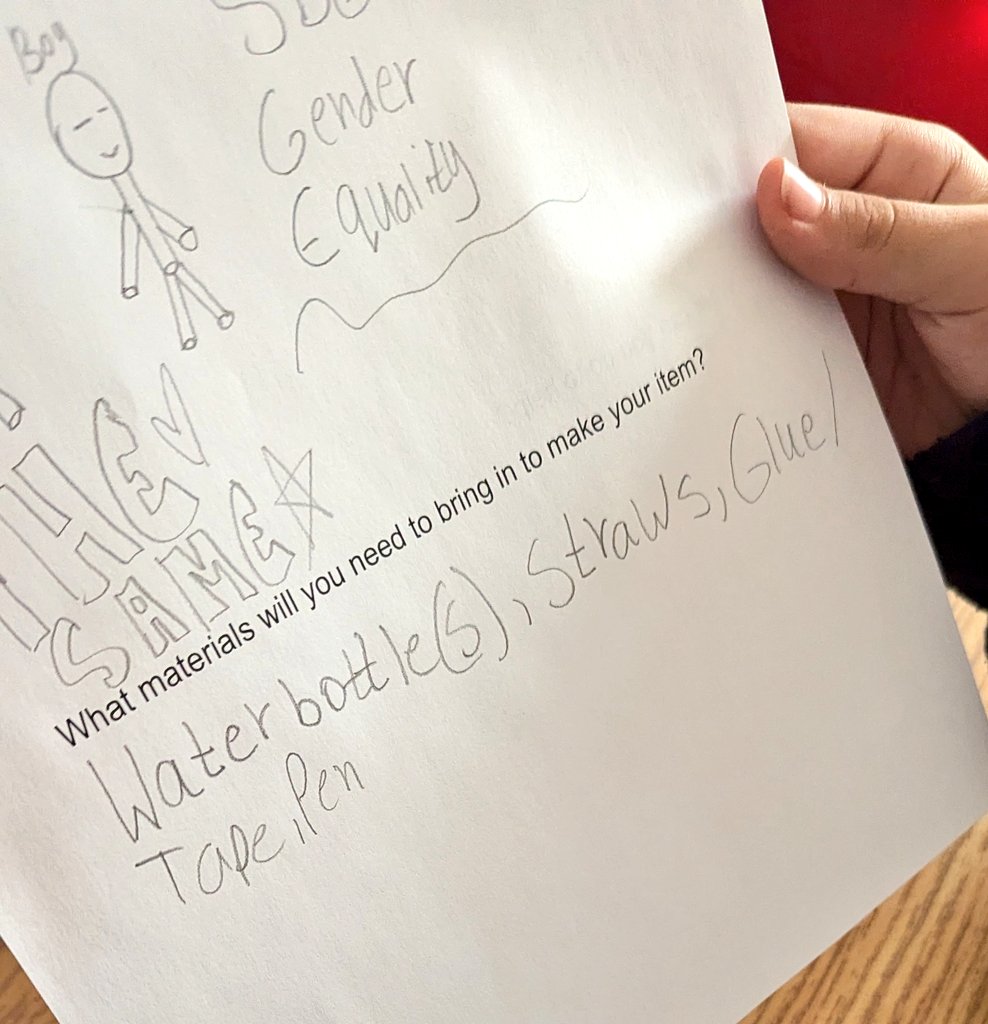 Boy
Gender
Equality
THE
SAME
What materials will you need to bring in to make your item?
Water bottle(s), Straws, Glue/
Tape, Pen